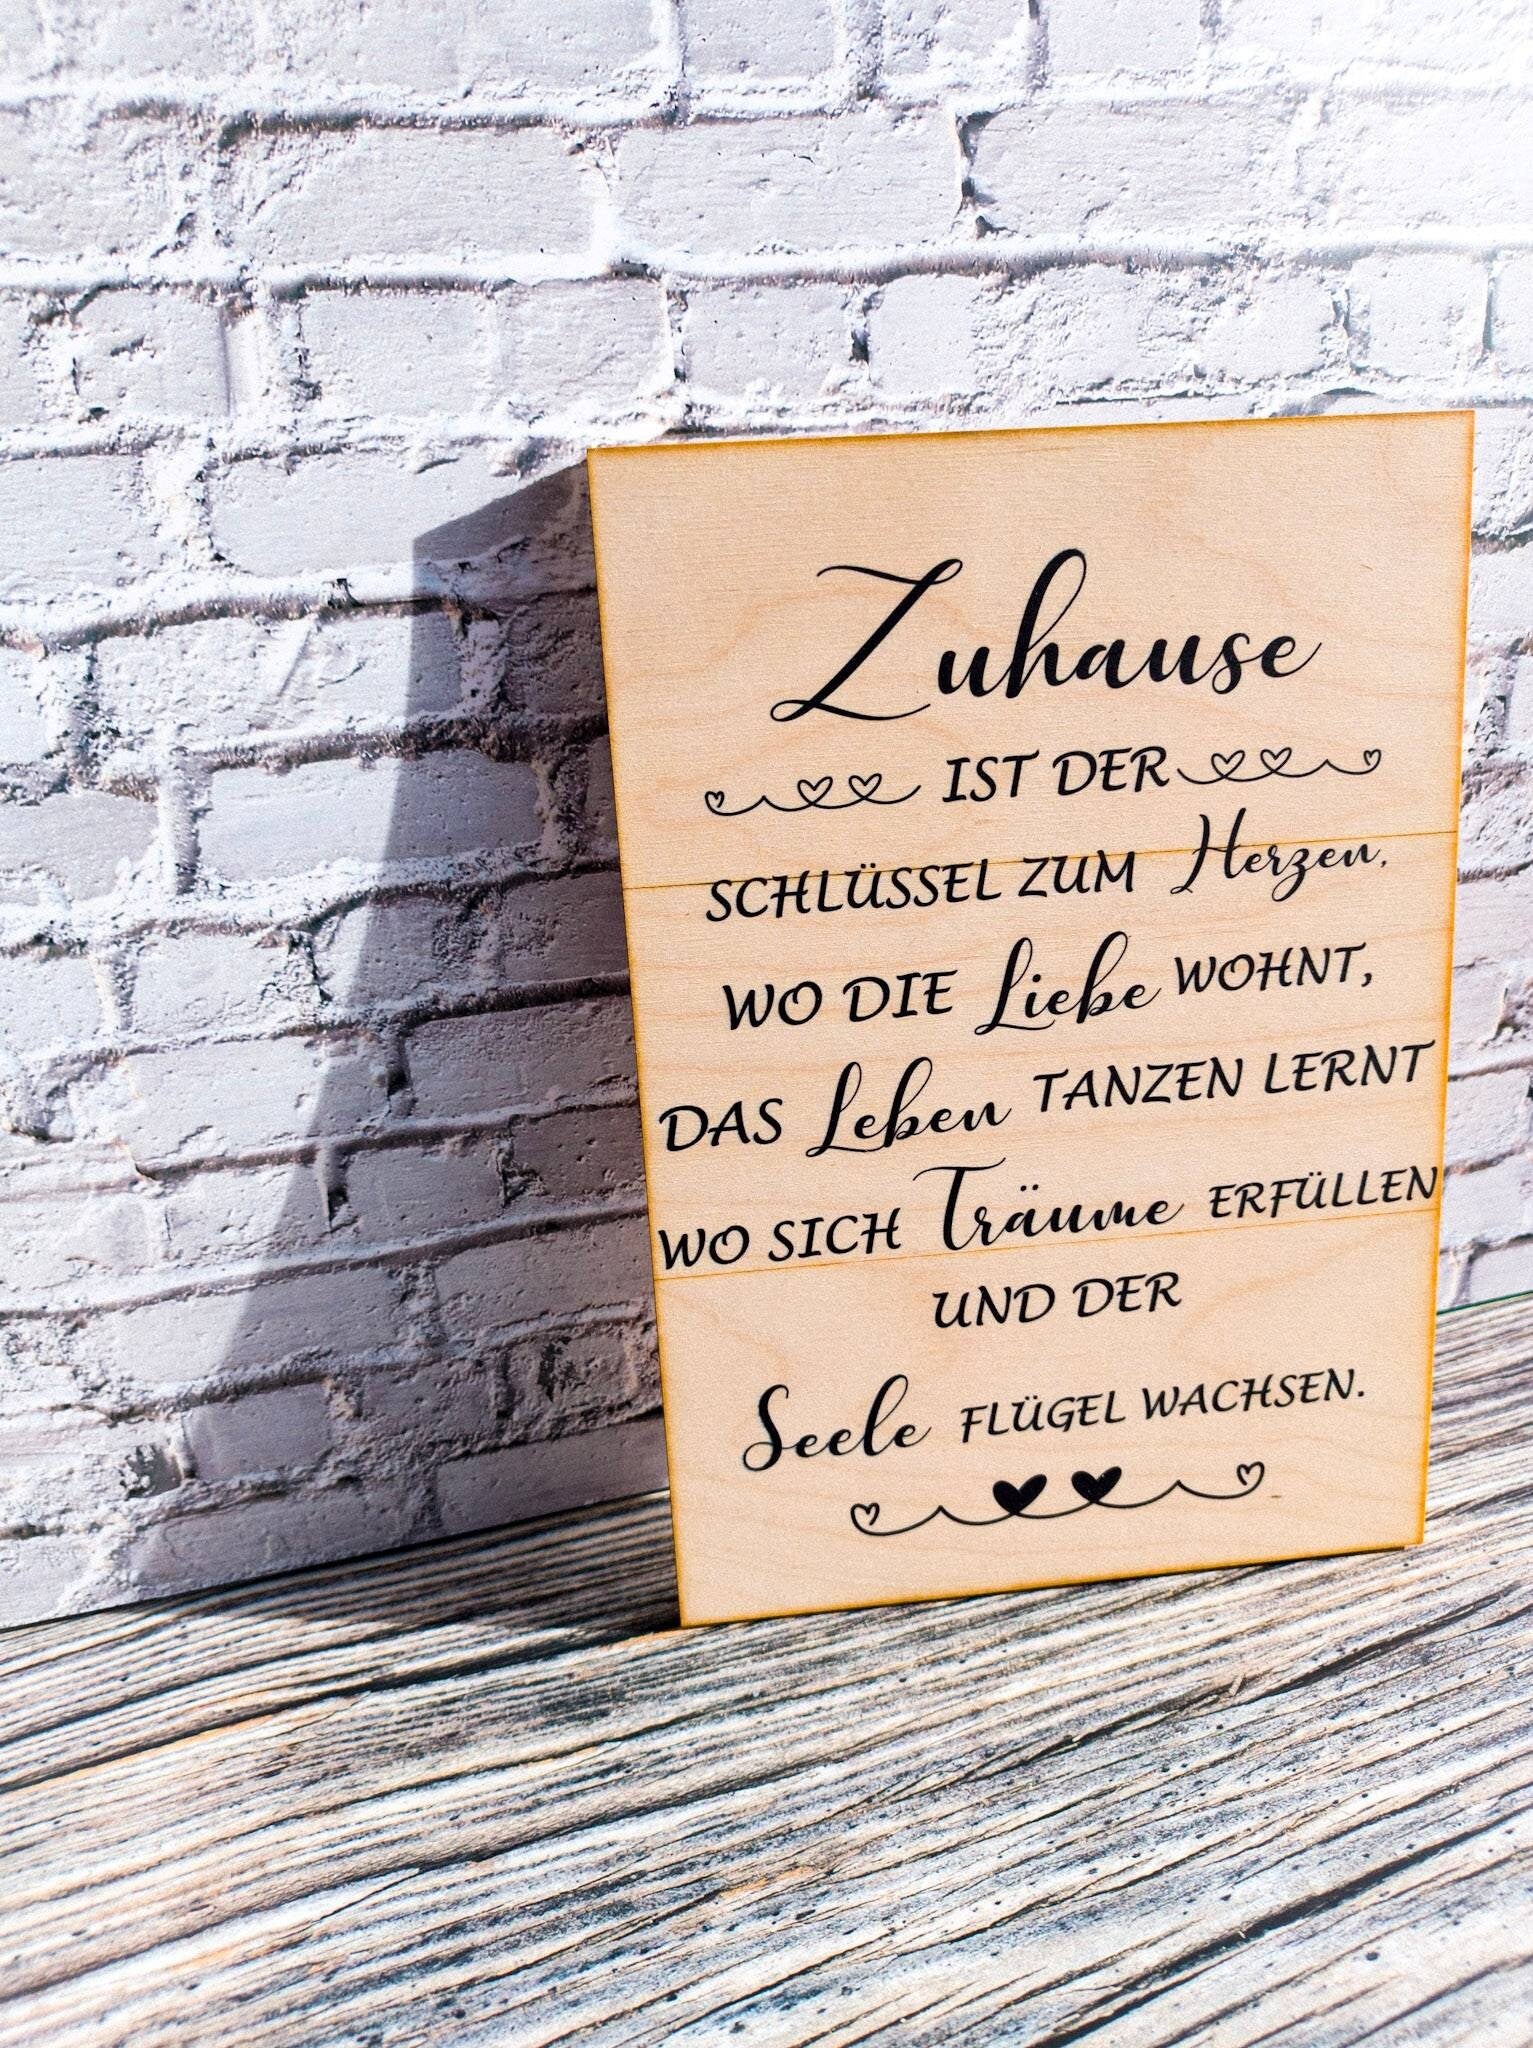 Zuhause
IST DER
SCHLÜSSEL ZUM Herzen.
WO DIE Liebe WOHNT,
DAS Leben TANZEN LERNT
WO SICH Träume ERFÜLLEN
UND DER
Seele FLÜGEL WACHSEN.